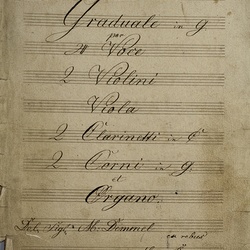 Graduale in g
per
4 Voce
2 Violini
Viola
2 Clarinetti in C
2 Corni in g
et
Organo.
Del Sigl. M. Demmel